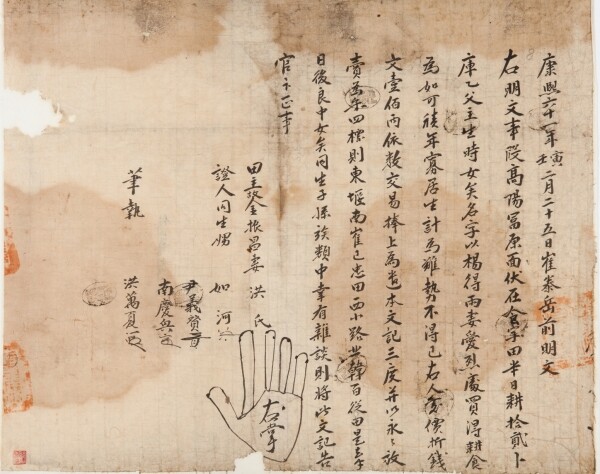 康熙六十一年壬寅二月二十五日崔泰岳前明文
右明文事段高陽冨原面伏在金字田半日耕拾貳卜
庫乙父主生時女矣名字以楊得雨妻愛烈處買得耕食
為如可積年寡居生計為難勢不得已右人處價折錢
文壹佰両依數交易捧上為遣本文記三度并以永〻放
賣為乎四標則東堰南崔已忠田西小路北韓百從田是乎
日後良中女矣同生子孫族類中幸有雜談則將此文記告
官卞正事
田主故金振昌妻洪氏
右掌
證人同生甥如河
尹義賢
南慶興
筆執
洪萬夏